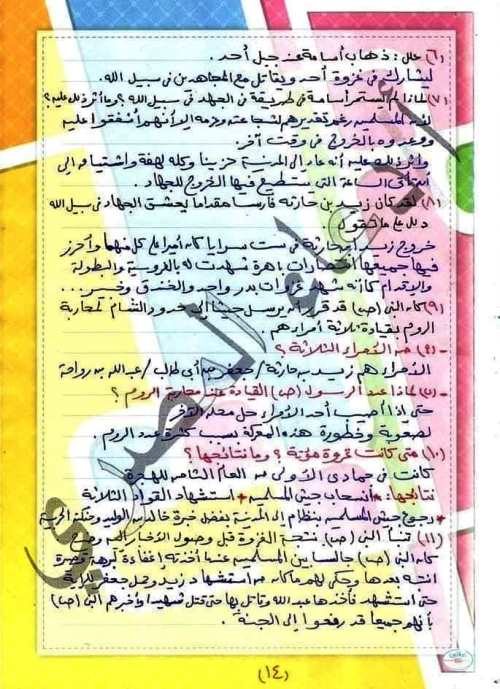 (٦) علل : ذهاب أسامة عند جبل أحد .
ليشارك فى غزوة أحد ويقاتل مع المجاهدين فى سبيل الله .
(٧) لماذا لم يستمر أسامة فى طريقة فى الجهاد فى سبيل الله ؟ وما أثر ذلك عليه ؟
لأن المسلمين رغم تقديرهم لشجاعته وعزمه إلا أنهم أشفقوا عليه
ووعدوه بالخروج فى وقت آخر.
وأثر ذلك عليه أنه عاد إلى المدينة حزينا وكله لهفة واشتياق إلى
أن تأتى الساعة التى يستطيع فيها الخروج للجهاد .
(٨) لقد كان زيد بن حارثة فارسا مقداما يعشق الجهاد فى سبيل الله
دلل على ما تقول
خروج زيد بن حارثة فى ست سرايا كان أميرا على كل منهما وأحرز
فيها جميعها انتصارات باهرة شهدت له بالفروسية والبطولة
والإقدام كما أنه شهد غزوات بدر وأحد والخندق وخيبر ...
(٩) كان النبى (ص) قد قرر أن يرسل جيشا إلى حدود الشام لمحاربة
الروم بقيادة ثلاثة أمراء هم .
- (٩) من الأمراء الثلاثة ؟
الأمراء هم زيد بن حارثة / جعفر بن أبى طالب / عبدالله بن رواحة
- (ن) لماذا عدد الرسول (ص) القيادة عند محاربة الروم ؟
حتى إذا أصيب أحد الأمراء حل محله الآخر
لصعوبة وخطورة هذه المعركة بسبب كثرة عدد الروم .
(١٠) متى كانت غزوة مؤتة ؟ وما نتائجها ؟
كانت فى جمادى الأولى من العام الثامن للهجرة
نتائجها : * انسحاب جيش المسلمين * استشهاد القواد الثلاثة
* رجوع جيش المسلمين بنظام إلى المدينة بفضل خبرة خالد بن الوليد وحنكته الحربية
(١١) تنبأ النبى (ص) نتيجة الغزوة قبل وصول الأخبار إليه وضح
كان النبى (ص) جالسا بين المسلمين عندما أخذته إغفاءة قصيرة
انتبه بعدها وحكى لهم ما كان من استشهاد زيد وحمل جعفر للراية
حتى استشهد فأخذها عبدالله وقاتل بها حتى قتل شهيدا وأخبرهم النبى (ص)
بأنهم جميعا قد رفعوا إلى الجنة .
(١٤)